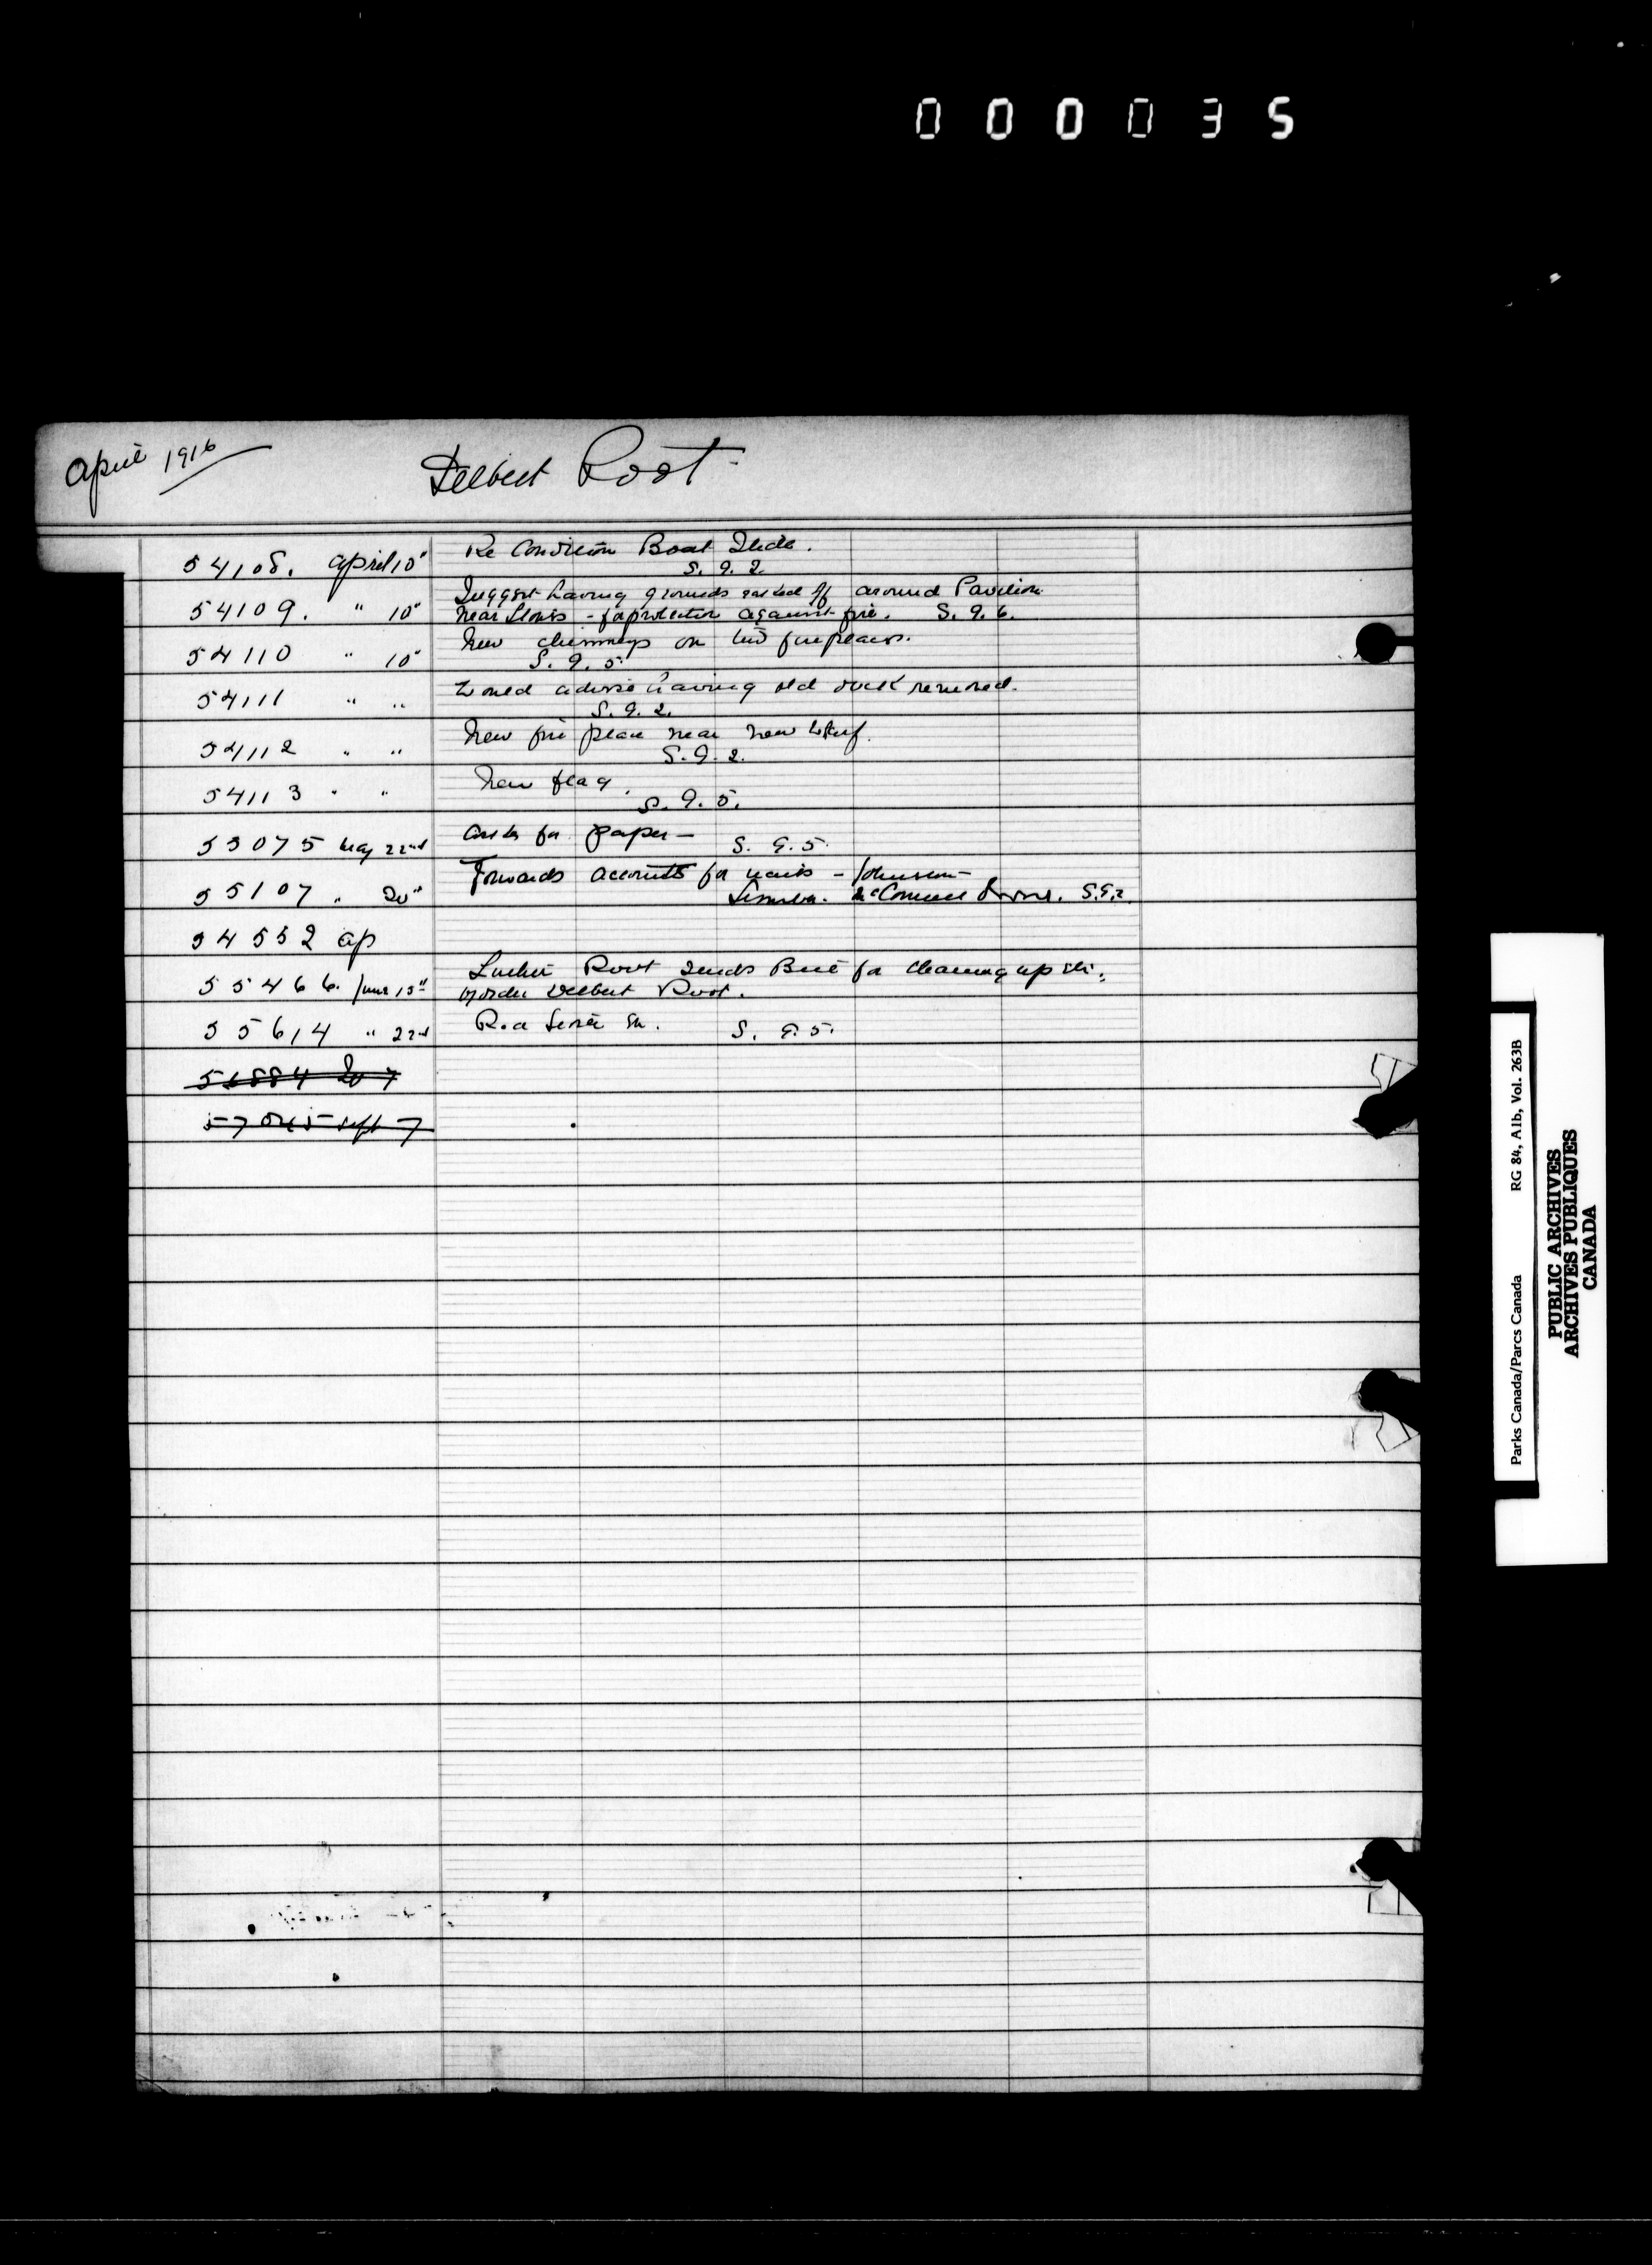 000035
April 1916
Delbert Root
54108. April 10" Re Condition Boat Slide.
S. 9. 2.
Suggest having grounds raked off around Pavilion
54109. " 10" near - for protection against fire. S. 9. 6.
New chimneys on two fireplaces.
54110 " 10" S. 9. 5
54111 " " would advise having old dock removed.
S. 9. 2.
54112 " " New fire place near new Wharf.
S. 9. 2.
54113 " " New flag.
S. 9. 5.
55075 May 22nd asks for paper —
S. 9. 5.
Forwards accounts for nails — Johnson —
55107 " 20" Lumber. McConnell S. 9. 2.
54552 ap
Luther Root sends Bill for cleaning up etc.
55466. June 15" by order Delbert Root.
55614 " 22nd S. 9. 5.
56884 7
57045 Sept 7
Parks Canada/Parcs Canada RG 84, A1b, Vol. 263B
PUBLIC ARCHIVES
ARCHIVES PUBLIQUES
CANADA